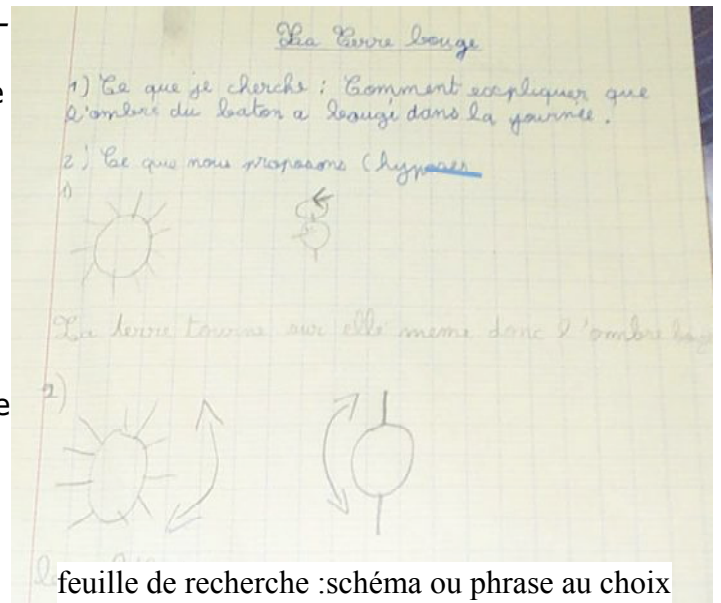 La Terre bouge
1) Ce que je cherche : Comment expliquer que
l'ombre du baton a bougé dans la journée.
2) Ce que nous proposons (hyposes
1)
La terre tourne sur elle meme donc l'ombre
2)
feuille de recherche :schéma ou phrase au choix